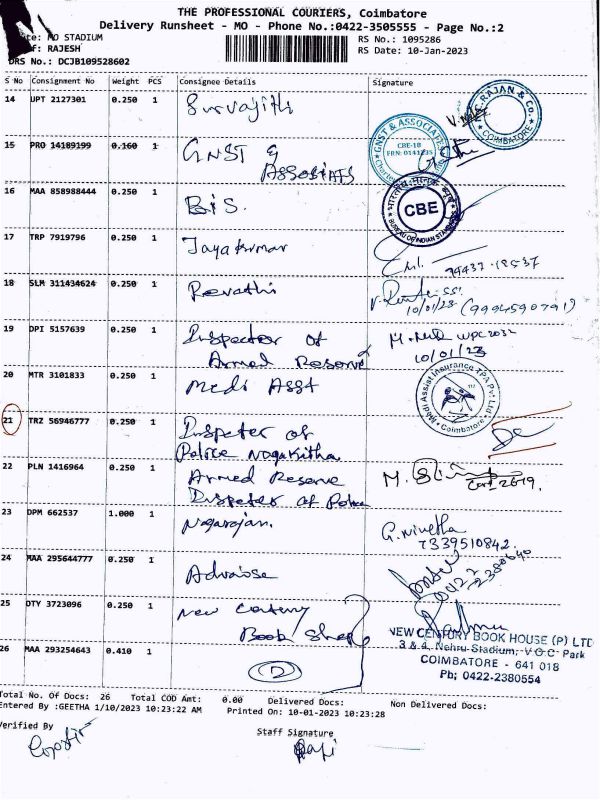 THE PROFESSIONAL COURIERS, Coimbatore
Delivery Runsheet - MO - Phone No.:0422-3505555 - Page No.:2
MO STADIUM
RS No.: 1095286
RAJESH
RS Date: 10-Jan-2023
DRS No.: DCJB109528602
S No Consignment No Weight PCS Consignee Details Signature
14 UPT 2127301 0.250 1
C-RAJAN & Co. COIMBATORE
15 PRO 14189199 0.160 1 GNST & Associates
GNST & ASSOCIATES
CBE-18
16 MAA 858988444 0.250 1 BiS.
CBE
17 TRP 7919796 0.250 1 Jayakumar
79437-18537
18 SLM 311434624 0.250 1 Revathi
10/01/23 (9994590791)
19 DPI 5157639 0.250 1 Inspector of
Armed Reserve
10/01/23
20 MTR 3101833 0.250 1 Medi Asst
Medi Assist Insurance TPA Pvt Ltd Coimbatore
21 TRZ 56946777 0.250 1 Inspeter of
Police
22 PLN 1416964 0.250 1 Armed Reserve
Inspeter of
23 DPM 662537 1.000 1 Nagarajan.
G.Nivetha
7339510842.
24 MAA 295644777 0.250 1
0422-2380640
25 DTY 3723096 0.250 1 New Century
Book Shop
26 MAA 293254643 0.410 1 2
NEW CENTURY BOOK HOUSE (P) LTD
3 & 4, Nehru Stadium, V O C Park
COIMBATORE - 641 018
Pb; 0422-2380554
Total No. Of Docs: 26 Total COD Amt: 0.00 Delivered Docs: Non Delivered Docs:
Entered By :GEETHA 1/10/2023 10:23:22 AM Printed On: 10-01-2023 10:23:28
Verified By Staff Signature